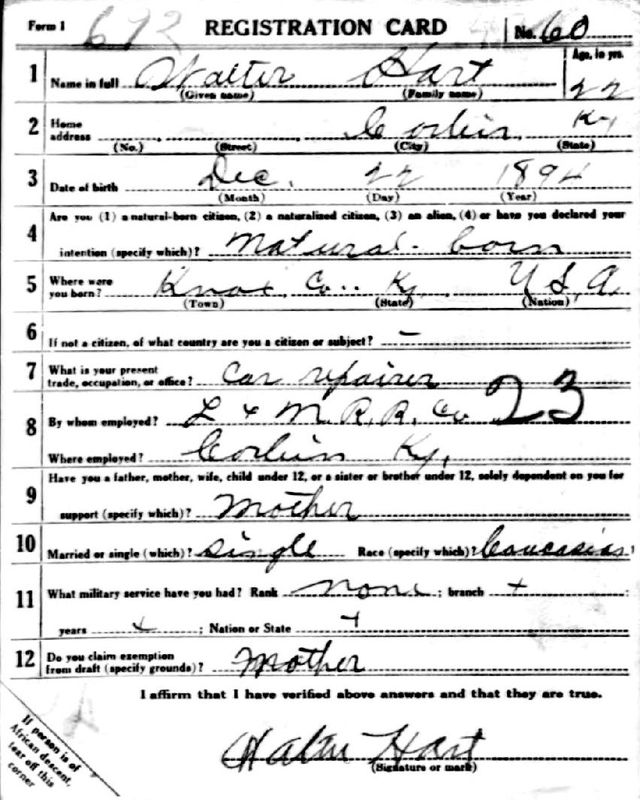 Form 1 673 REGISTRATION CARD No. 60
1 Name in full Walter Hart Age, in yrs. 22
(Given name) (Family name)
2 Home address Corbin Ky
(No.) (Street) (City) (State)
3 Date of birth Dec. 22 1894
(Month) (Day) (Year)
4 Are you (1) a natural-born citizen, (2) a naturalized citizen, (3) an alien, (4) or have you declared your
intention (specify which)? Natural-born
5 Where were you born? Knox Co.. Ky, U.S.A.
(Town) (State) (Nation)
6 If not a citizen, of what country are you a citizen or subject? –
7 What is your present trade, occupation, or office? Car repairer
23
8 By whom employed? L & N. R. R. Co
Where employed? Corbin Ky,
9 Have you a father, mother, wife, child under 12, or a sister or brother under 12, solely dependent on you for
support (specify which)? Mother
10 Married or single (which)? single Race (specify which)? Caucasian
11 What military service have you had? Rank none ; branch x ;
years x ; Nation or State x
12 Do you claim exemption from draft (specify grounds)? Mother
I affirm that I have verified above answers and that they are true.
Walter Hart
(Signature or mark)
If person is of
African descent,
tear off this
corner